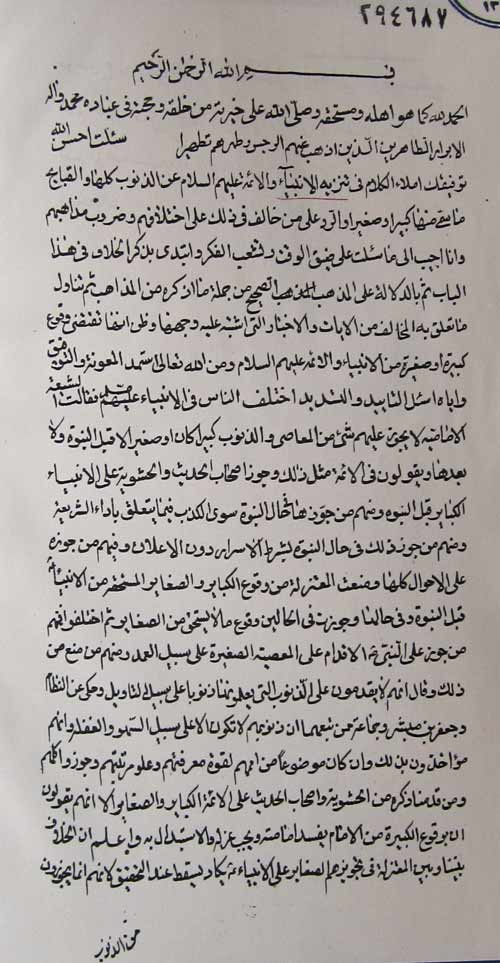 ١٣
٢٩٤٦٨٧
بسم الله الرحمن الرحيم
الحمد لله كما هو اهله ومستحقه وصلى الله على خيرته من خلقه وحججه فى عباده محمد واله
الابرار الطاهرين الذين اذهب عنهم الرجس وطهرهم تطهيرا سئلت احسن الله
توفيقك املاء الكلام فى تنزيه الانبياء والائمة عليهم السلام عن الذنوب كلها والقبايح
ما سمى منها كبيرا وصغيرا والرد على من خالف فى ذلك على اختلافهم وضروب مذاهبهم
وانا اجيب الى ما سئلت على ضيق الوقت وتشعب الفكر وابتدى بذكر الخلاف فى هذا
الباب ثم بالدلالة على المذهب الصحيح من جملة ما اذكره من المذاهب ثم تناول
ما تعلق به المخالف من الايات والاخبار التى اشتبه عليه وجهها وظن انها تقتضى وقوع
كبيرة او صغيرة من الانبياء والائمة عليهم السلام ومن الله تعالى استمد المعونة والتوفيق
واياه اسئل التاييد والتسديد اختلف الناس فى الانبياء عليهم فقالت الشيعة
الامامية لا يجوز عليهم شئ من المعاصى والذنوب كبيرا كان او صغيرا لا قبل النبوة ولا
بعدها ويقولون فى الائمة مثل ذلك وجوز اصحاب الحديث والحشوية على الانبياء
الكباير قبل النبوة ومنهم من جوزها فى حال النبوة سوى الكذب فيما يتعلق باداء الشريعة
ومنهم من جوز ذلك فى حال النبوة بشرط الاسرار دون الاعلان وفيهم من جوزه
على الاحوال كلها ومنعت المعتزلة من وقوع الكباير والصغاير المستخفة من الانبياء
قبل النبوة وفى حالها وجوزت فى الحالين وقوع ما لا يستخف من الصغاير ثم اختلفوا فمنهم
من جوز على النبى الاقدام على المعصية الصغيرة على سبيل العمد ومنهم من منع من
ذلك وقال انهم لا يقدمون على الذنوب التى يعلمونها ذنوبا على سبيل التاويل وحكى عن النظام
وجعفر بن مبشر وجماعة ممن تبعهما ان ذنوبهم لا تكون الا على سبيل السهو والغفلة وانهم
مؤاخذون بذلك وان كان موضوعا عن اممهم لقوة معرفتهم وعلو مرتبتهم وجوزوا كلهم
ومن قدمنا ذكره من الحشوية واصحاب الحديث على الائمة الكباير والصغاير الا انهم يقولون
ان بوقوع الكبيرة من الامام يفسد امامته ويجب عزله والاستبدال به واعلم ان الخلاف
بيننا وبين المعتزلة فى تجويزهم الصغاير على الانبياء يكاد يسقط عند التحقيق لانهم انما يجوزون
من الذنوب